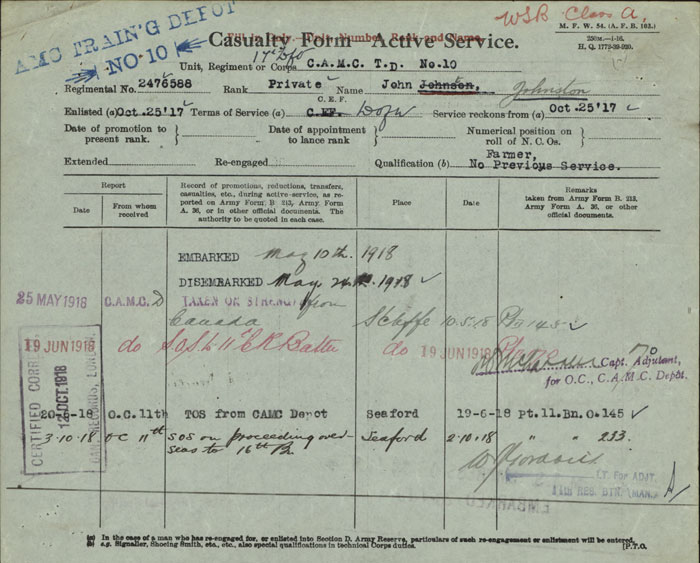 AMC TRAIN'G DEPOT
NO·10
WSB Class A,
M. F. W. 54. (A. F. B. 103.)
250M.—1-16.
H. Q. 1772-39-920.
Fill in Only. Unit, Number, Rank and Name.
Casualty Form—Active Service.
Unit, Regiment or Corps C.A.M.C. T.D. No.10
Regimental No. 2476588 Rank Private Name John Johnson, Johnston
C.E.F.
Enlisted (a) Oct.25'17 Terms of Service (a) C.EF. DofW Service reckons from (a) Oct.25'17
Date of promotion to present rank. Date of appointment to lance rank Numerical position on roll of N. C. Os.
Extended Re-engaged Qualification (b) Farmer, No Previous Service.
Report
Date
From whom received
Record of promotions, reductions, transfers, casualties, etc., during active service, as reported on Army Form, B 213, Army Form A. 36, or in other official documents. The authority to be quoted in each case.
Place
Date
Remarks
taken from Army Form B. 213, Army Form A. 36, or other official documents.
EMBARKED May 10th. 1918
DISEMBARKED May 1918
25 MAY 1918 C.A.M.C. D TAKEN ON STRENGTH from
Canada 10.5.18
19 JUN 1918 do SOS to 11th CR Battn do 19 JUN 1918
Capt. Adjutant,
for O.C., C.A.M.C. Depôt.
CERTIFIED CORRECT
12 OCT. 1918
RECORDS, LONDON
O.C.11th TOS from CAMC Depot Seaford 19-6-18 Pt.11.Bn.O.145
3.10.18 OC 11th SOS on proceeding overseas to 16th Bn. Seaford 2.10.18 " " 233.
LT. FOR ADJT.
11TH RES. BTN. (MAN.)
(a) In the case of a man who has re-engaged for, or enlisted into Section D. Army Reserve, particulars of such re-engagement or enlistment will be entered.
(b) e.g. Signaller, Shoeing Smith, etc., etc., also special qualifications in technical Corps duties.
[P.T.O.